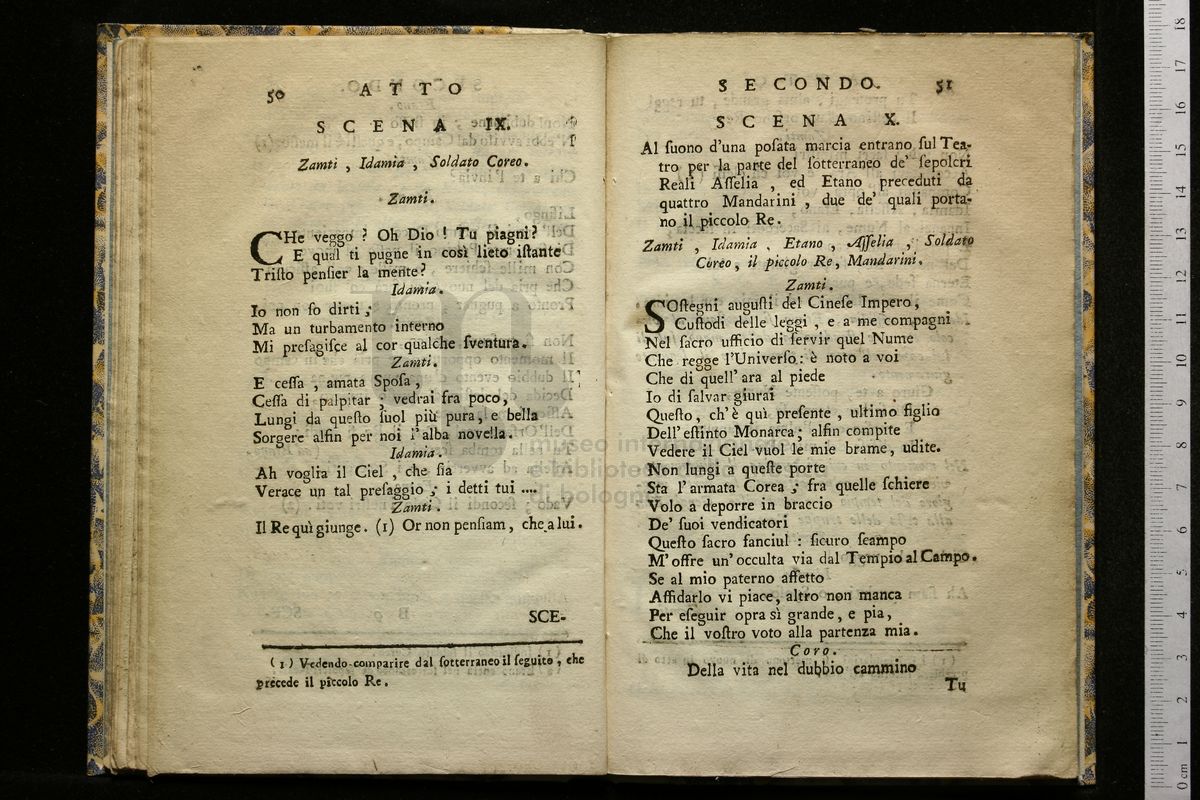 50 ATTO
SCENA IX.
Zamti , Idamia , Soldato Coreo.
Zamti.
CHe veggo ? Oh Dio ! Tu piagni?
E qual ti pugne in così lieto iſtante
Triſto penſier la mente?
Idamia.
Io non ſo dirti ;
Ma un turbamento interno
Mi preſagiſce al cor qualche ſventura.
Zamti.
E ceſſa , amata Spoſa ,
Ceſſa di palpitar ; vedrai fra poco,
Lungi da queſto ſuol più pura, e bella
Sorgere alfin per noi l'alba novella.
Idamia.
Ah voglia il Ciel , che ſia
Verace un tal preſaggio ; i detti tui ....
Zamti.
Il Re quì giunge. (1) Or non penſiam, che a lui.
SCE-
(1) Vedendo comparire dal ſotterraneo il ſeguito, che
precede il piccolo Re.
SECONDO. 51
SCENA X.
Al ſuono d'una poſata marcia entrano ſul Tea-
tro per la parte del ſotterraneo de' ſepolcri
Reali Aſſelia , ed Etano preceduti da
quattro Mandarini , due de' quali porta-
no il piccolo Re.
Zamti , Idamia , Etano , Aſſelia , Soldato
Coreo, il piccolo Re, Mandarini.
Zamti.
SOſtegni auguſti del Cineſe Impero,
Cuſtodi delle leggi , e a me compagni
Nel ſacro ufficio di ſervir quel Nume
Che regge l'Univerſo: è noto a voi
Che di quell' ara al piede
Io di ſalvar giurai
Queſto, ch'è quì preſente , ultimo figlio
Dell' eſtinto Monarca; alfin compite
Vedere il Ciel vuol le mie brame, udite.
Non lungi a queſte porte
Sta l'armata Corea ; fra quelle ſchiere
Volo a deporre in braccio
De' ſuoi vendicatori
Queſto ſacro fanciul : ſicuro ſcampo
M'offre un'occulta via dal Tempio al Campo.
Se al mio paterno affetto
Affidarlo vi piace, altro non manca
Per eſeguir opra sì grande, e pia,
Che il voſtro voto alla partenza mia.
Coro.
Della vita nel dubbio cammino
Tu